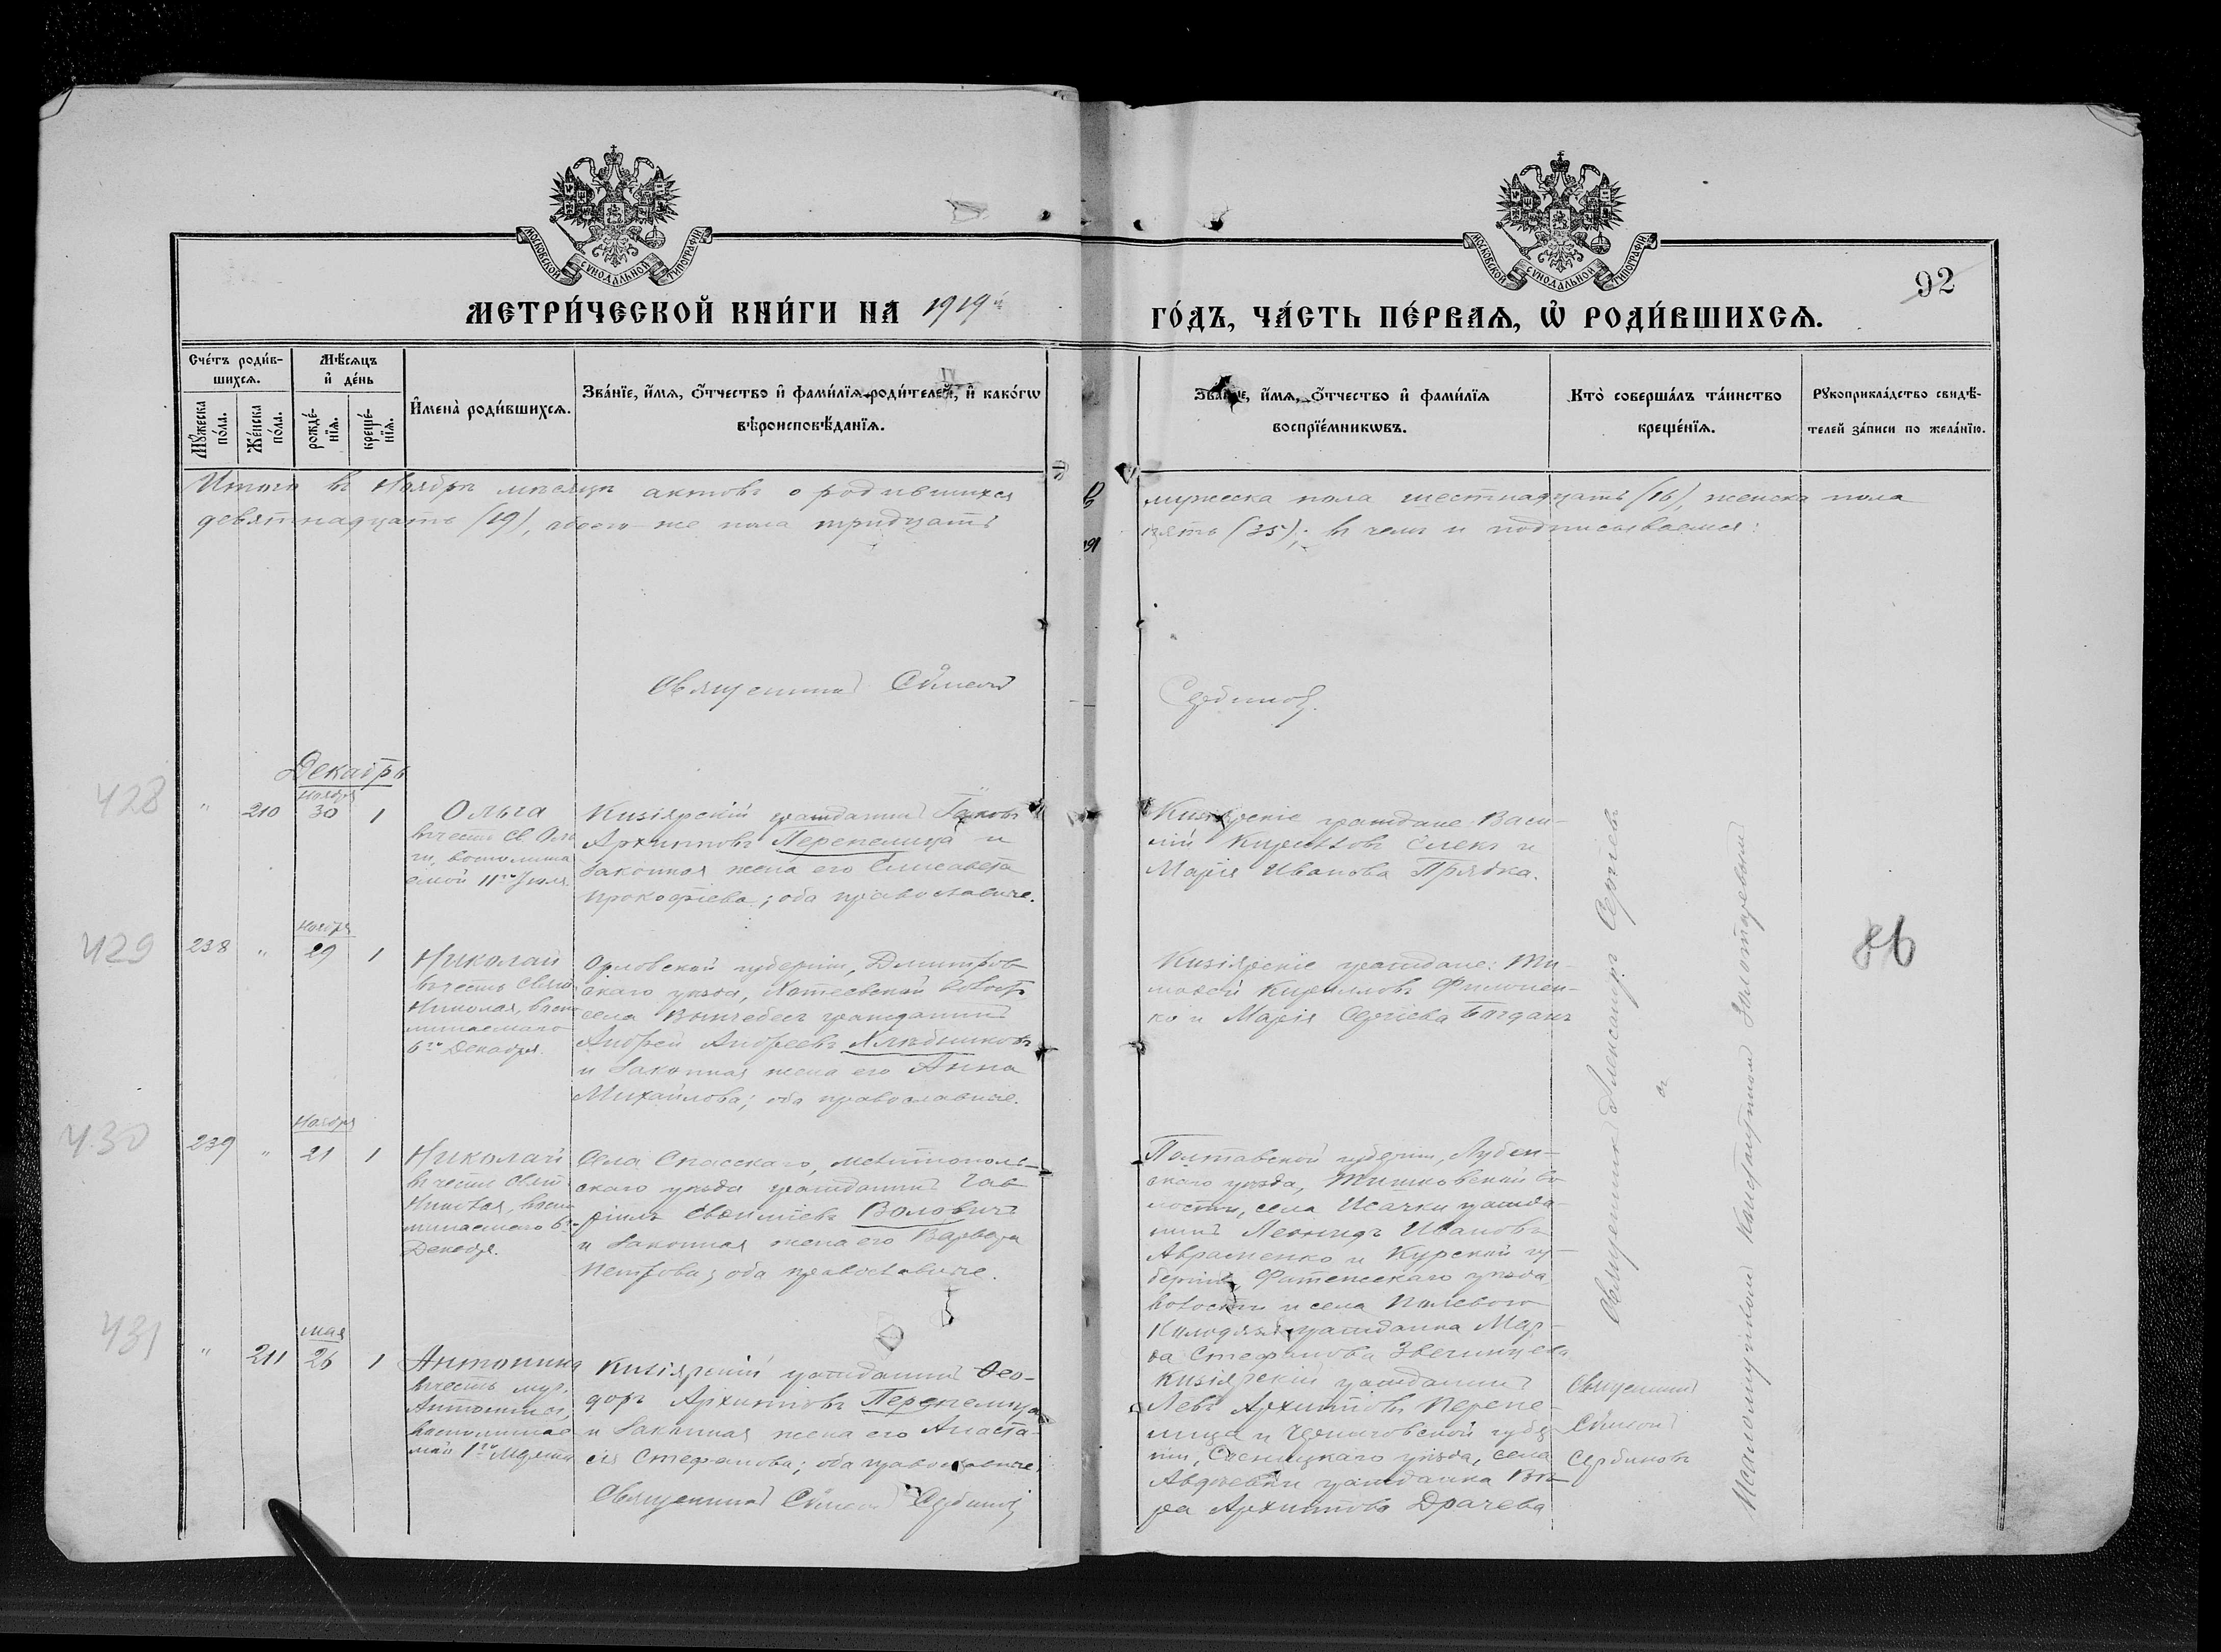 МОСКОВСКОЙ СУНОДАЛЬНОЙ ТИПОГРАФІИ
МОСКОВСКОЙ СУНОДАЛЬНОЙ ТИПОГРАФІИ
92
МЕТРИ́ЧЕСКОЙ КНИ́ГИ НА 1919й
ГО́ДЪ, ЧА́СТЬ ПЕ́РВАѦ, Ѡ҆ РОДИ́ВШИХСѦ.
Сче́тъ роди́в-
шихсѧ.
Мꙋ́жеска по́ла.
Же́нска по́ла.
Мѣ́сѧцъ
и҆ де́нь
рожде́-нїѧ.
креще́-нїѧ.
И҆мена̀ роди́вшихсѧ.
Зва́нїе, и҆́мѧ, ѻ҆́тчество и҆ фами́лїѧ роди́телей, и҆ како́гѡ
вѣроисповѣ́данїѧ.
Зва́нїе, и҆́мѧ, ѻ҆́тчество и҆ фами́лїѧ
воспрїе́мникѡвъ.
Кто̀ соверша́лъ та́инство
креще́нїѧ.
Рꙋкоприкла́дство свидѣ́-
телей за́писи по жела́нїю.
Итого въ Ноябрѣ мѣсяцѣ актовъ о родившихся
девятнадцать (19), обоего же пола тридцать
мужеска пола шестнадцать (16), женска пола
пять (35); въ чемъ и подписываемся:
Священникъ Сѵмеонъ
Сербиновъ.
Декабрь
428
"
210
Ноября
30
1
Ольга
въ честь св. Оль
ги, воспомина
емой 11го Іюля.
Кизіярскій гражданинъ Іаковъ
Архиповъ Перепелица и
законная жена его Елисавета
Прокофіева; оба православные.
Кизіярскіе граждане Васи-
лій Кирилловъ и
Марія Иванова Прядка.
429
238
"
Ноября
29
1
Николай
въ честь Свят.
Николая, воспо
минаемаго
6го Декабря.
Орловской губерніи, Дмитров
скаго уѣзда, волости
села гражданинъ
Андрей Андреевъ Хлѣбниковъ
и законная жена его Анна
Михайлова; оба православные.
Кизіярскіе граждане: Ти-
мофей Кирилловъ Филонен-
ко и Марія Сергіева Богданъ
86
430
239
"
Ноября
21
1
Николай
въ честь Свят.
Николая, воспо
минаемаго 6го
Декабря.
Села Спасскаго, Мелитополь-
скаго уѣзда гражданинъ Гав
ріилъ Евѳиміевъ Воловичъ
и законная жена его Варвара
Петрова; оба православные.
Полтавской губерніи, Лубен-
скаго уѣзда, Тишковской во
лости, села Исачки гражда-
нинъ Леонидъ Ивановъ
Авраменко и Курской гу-
берніи, Фатежскаго уѣзда
волости и села Нилевого
Колодязя гражданка Мар-
ѳа Стефанова Звегинцева
Священникъ Александръ Сергіевъ
съ
Псаломщикомъ Константиномъ Золотаревымъ
431
"
211
мая
26
1
Антонина
въ честь муч.
Антонины,
воспоминае
мой 1го Марта
Кизіярскій гражданинъ Ѳео-
доръ Архиповъ Перепелица
и законная жена его Анаста-
сія Стефанова; оба православные.
Священникъ Сѵмеонъ Сербиновъ
Кизіярскій гражданинъ
Левъ Архиповъ Перепе-
лица и Черниговской губер
ніи, Сосницкаго уѣзда, села
Авдѣевки гражданка Вѣ-
ра Архипова Драчева
Священникъ
Сѵмеонъ
Сербиновъ